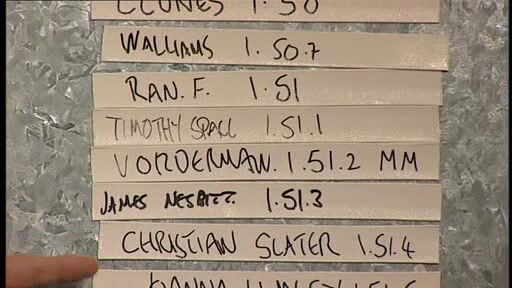 CLUNES 1.50
WALLIAMS 1.50.7
RAN. F. 1.51
TIMOTHY SPALL 1.51.1
VORDERMAN. 1.51.2 MM
JAMES NESBITT. 1.51.3
CHRISTIAN SLATER 1.51.4